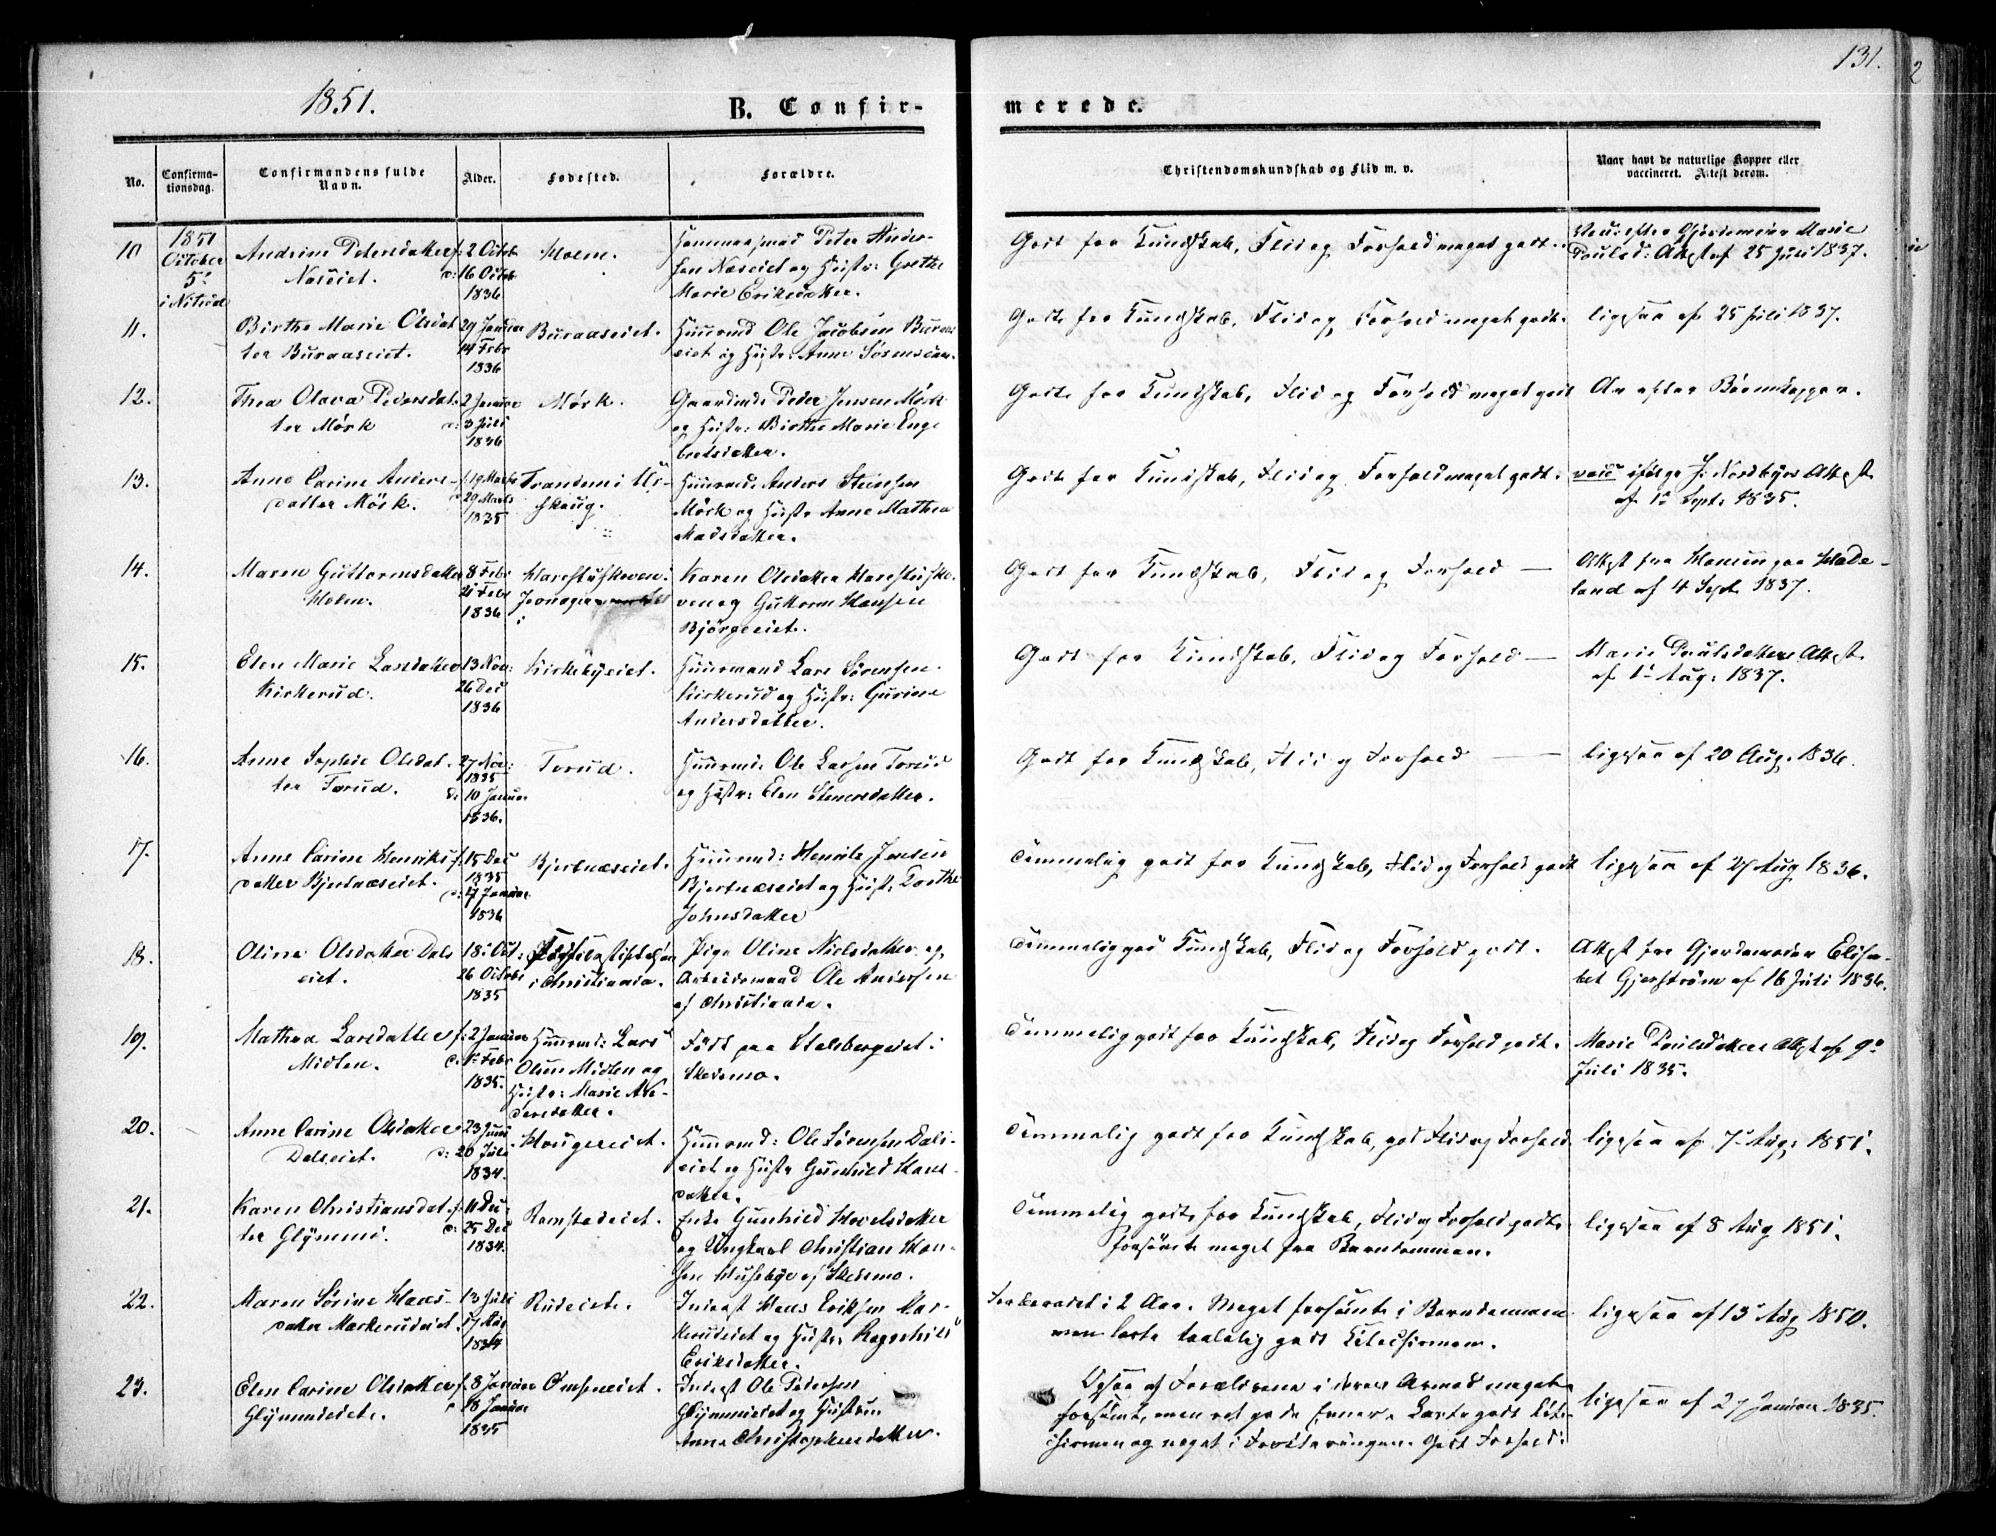 131.
2
1851.
B. Confir-
merede.
No.
Confirma-
tionsdag.
Confirmandens fulde
Navn.
Alder.
Fødested.
Forældre.
Christendomskundskab og Flid m. v.
Naar havt de naturlige Kopper eller
vaccineret. Attest derom.
10
1851
October
5.
i Nitedal
Andrine Petersdatter
Næseiet.
f: 2 Octob
d: 16 Octob
1836
Holm.
Peter Ander-
sen Næseiet og Hustr: Grethe
Marie Eriksdatter.
Godt for Kundskab, Flid og Forhold meget godt.
Gjordemoder Marie
Poulsd: Attest af 25 Juli 1837.
11.
Birthe Marie Olsdat
ter Buraaseiet.
29 Januar
14 Febr
1836
Buraaseiet.
Huusmd Ole Jacobsen Buraas
eiet og Hustr: Anne Sørensdatter.
Godt for Kundskab, Flid og Forhold meget godt.
ligesaa af 25 Juli 1837.
12.
Thea Olava Pedersdat
ter Mørk
2 Januar
d: 3 Juli
1836
Mørk.
Gaardmd: Peder Jensen Mørk
og Hustr: Birthe Marie Enge
bretsdatter.
Godt for Kundskab, Flid og Forhold meget godt
Ar efter Børnekopper.
13.
Anne Carine Anders-
datter Mørk.
f. 19 Marts
d 29 Marts
1835
Trandem i Ul-
skaug.
Huusmd: Anders Steensen
Mørk og Hustr Anne Mathea
Madsdatter.
Godt for Kundskab, Flid og Forhold meget godt.
vacc ifølge J. Nordbyes Attest
af 1 Sept. 1835.
14.
Maren Guttormsdatter
Holm.
8 Febr
21 Febr
1836
Harestuskoven i
Jevnager
Karen Olsdatter Harestusko-
ven og Guttorm Hansen
Bjørgeeiet.
Godt for Kundskab, Flid og Forhold —
Attest fra paa Hade-
land af 4 Sept 1837.
15.
Elen Marie Larsdatter
Kirkerud.
13 Nov:
26 Dec
1836
Kirkebyeiet.
Huusmand Lars Sørensen
Kirkerud og Hustr: Gurine
Andersdatter.
Godt for Kundskab, Flid og Forhold —
Marie Poulsdatters Attest
af 1 Aug: 1837.
16.
Anne Sophie Olsdat-
ter Torud.
27 Nov:
1835
d: 10 Januar
1836.
Torud.
Huusmd: Ole Larsen Torud
og Hustr: Elen Steensdatter.
Godt for Kundskab, Flid og Forhold —
ligesaa af 20 Aug. 1836.
17.
Anne Carine Henriks-
datter Bjertnæseiet.
f. 15 Dec
1835
d: 17 Januar
1836
Bjertnæseiet.
Huusmd: Henrik Jensen
Bjertnæseiet og Hustr: Dorthe
Johnsdatter
Temmelig godt for Kundskab, Flid og Forhold godt
ligesaa af 27 Aug 1836.
18.
Oline Olsdatter Dals
eiet.
18 Oct:
26 Octobr
1835
i Christiania.
Pige Oline Nielsdatter og
Arbeidsmand Ole Andersen
af Christiania.
Temmelig god Kundskab, Flid og Forhold godt.
Attest fra Gjordemoder Elisa-
bet Gjerstrøm af 16 Juli 1836.
19.
Mathea Larsdatter
Midlen.
f: 2 Januar
d: 1 Febr
1835.
Huusmd: Lars
Olsen Midlen og
Hustr: Marie
datter.
Født paa Stalsbergeiet i
Skedsmo.
Temmelig godt for Kundskab, Flid og Forhold godt.
Marie Poulsdatters Attest af 9
Juli 1835.
20.
Anne Carine Olsdatter
Dalseiet.
23 Juni
d: 20 Juli
1834.
Hougereiet.
Huusmd: Ole Sørensen Dals-
eiet og Hustr Gunhild Hans-
datter.
Temmelig godt for Kundskab, god Flid og Forhold
ligesaa af 7 Aug: 1851.
21.
Karen Christiansdat-
ter Glømmi.
f. 11 Dec
d: 25 Dec
1834.
Ramstadeiet.
Enke Gunhild Hovelsdatter
og Ungkarl Christian Han-
sen Husebye af Skedsmo.
Temmelig godt for Kundskab, Flid og Forhold godt.
forsømt meget fra Barndommen.
ligesaa af 8 Aug 1851.
22.
Maren Sørine Hans-
datter Markerudeiet.
13 Juli
17 Aug
1834
Rudeiet.
Inderst Hans Eriksen Mar-
kerudeiet og Hustr: Ragnhild
Eriksdatter.
Forberedet i 2 Aar. Meget forsømt i Barndommen
men lærte taalelig godt Catechismen.
ligesaa af 13 Aug 1850.
23.
Elen Carine Olsdatter
Glømmieiet.
f. 8 Januar
d 18 Januar
1835
Omseneiet.
Inderst Ole Pedersen
Glømmieiet og Hustru
Anne Christophersdatter.
Ogsaa af Forældrene i deres Armod meget
forsømt, men ret gode Evner. Lærte godt Cate-
chismen og meget i Forklaringen. Godt Forhold.
ligesaa af 27 Januar 1835.